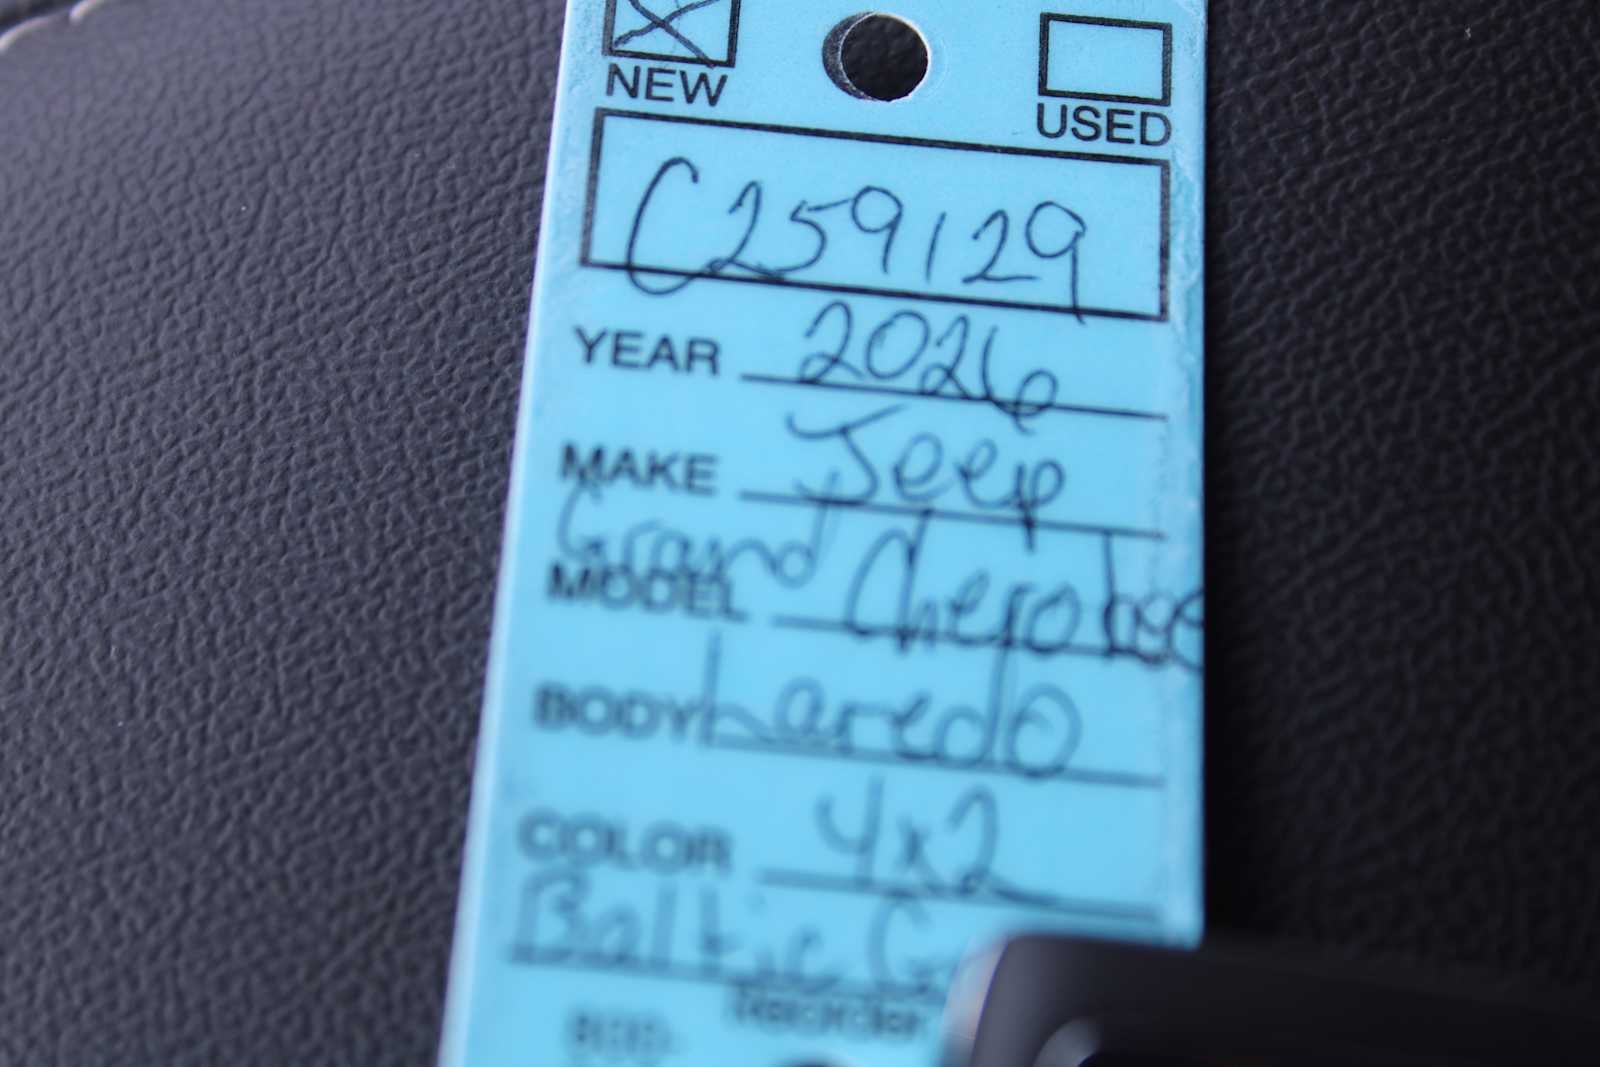 NEW USED
C259129
YEAR 2026
MAKE Jeep
Grand Cherokee
MODEL
BODY Laredo
COLOR 4x2
Baltic
Reorder
800-